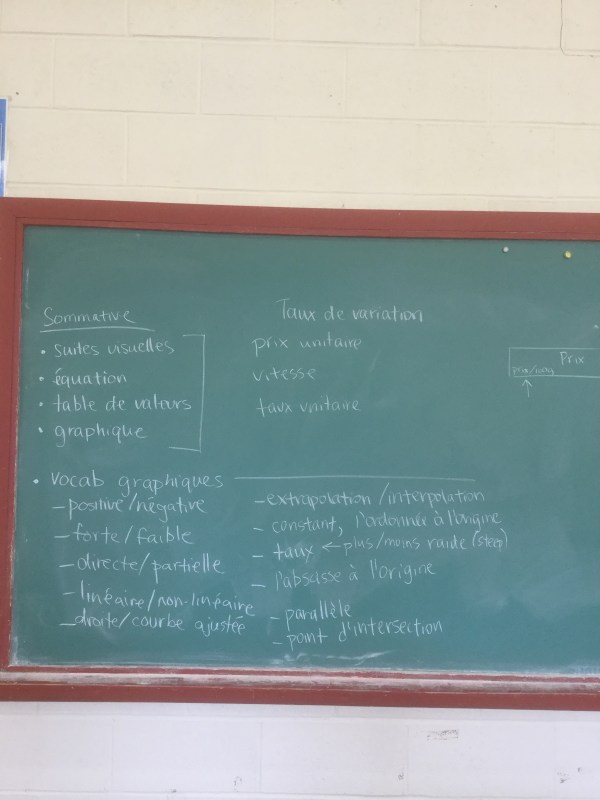 Sommative
• suites visuelles
• équation
• table de valeurs
• graphique
Taux de variation
prix unitaire
vitesse
taux unitaire
Prix
• vocab graphiques
– positive/négative
– forte/faible
– directe/partielle
– linéaire/non-linéaire
– droite/courbe ajustée
– extrapolation/interpolation
– constant, l'ordonnée à l'origine
– taux ← plus/moins raide (steep)
– l'abscisse à l'origine
– parallèle
– point d'intersection